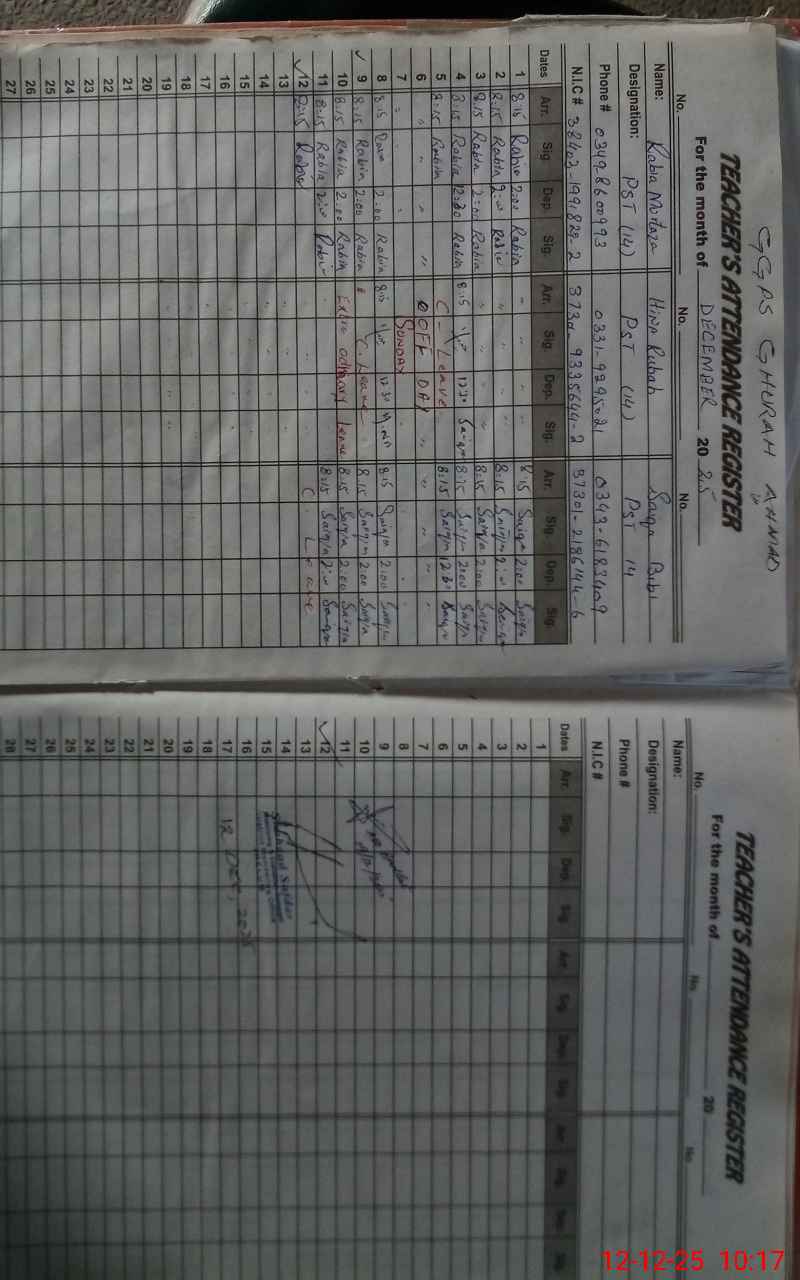 GGPS GHURAH
TEACHER'S ATTENDANCE REGISTER
For the month of DECEMBER 20 25
No. No. No.
Name: Rabia Murtaza Hina Rubab Saiqa Bibi
Designation: PST (14) PST (14) PST 14
Phone # 03498600993 0331-9295021 0343-6183409
N.I.C # 37301-2186144-6
Dates Arr. Sig. Dep. Sig. Arr. Sig. Dep. Sig. Arr. Sig. Dep. Sig.
1 8:15 Rabia 2:00 Rabia 8:15 Saiqa 2:00 Saiqa
2 8:15 Rabia 2:00 Rabia 8:15 Saiqa 2:00 Saiqa
3 8:15 Rabia 2:00 Rabia 8:15 Saiqa 2:00 Saiqa
4 8:15 Rabia 2:00 Rabia 8:15 Saiqa 2:00 Saiqa
5 8:15 Rabia C-Leave 8:15 Saiqa 12:30 Saiqa
6 OFF DAY
7 SUNDAY
8 8:15 2:00 Rabia 8:15 12:30 8:15 Saiqa 2:00 Saiqa
9 8:15 Rabia 2:00 Rabia C. Leave 8:15 Saiqa 2:00 Saiqa
10 8:15 Rabia 2:00 Rabia Extra ordinary leave 8:15 Saiqa 2:00 Saiqa
11 8:15 Rabia 2:00 Rabia 8:15 Saiqa 2:00 Saiqa
12 8:15 Rabia C. Leave
13
14
15
16
17
18
19
20
21
22
23
24
25
26
27
TEACHER'S ATTENDANCE REGISTER
For the month of 20
No. No. No.
Name:
Designation:
Phone #
N.I.C #
Dates Arr. Sig. Dep. Sig. Arr. Sig. Dep. Sig. Arr. Sig. Dep. Sig.
1
2
3
4
5
6
7
8
9
10
11
12
13
14
15
16
17 12 DEC, 2025
18
19
20
21
22
23
24
25
26
27
28
12-12-25 10:17